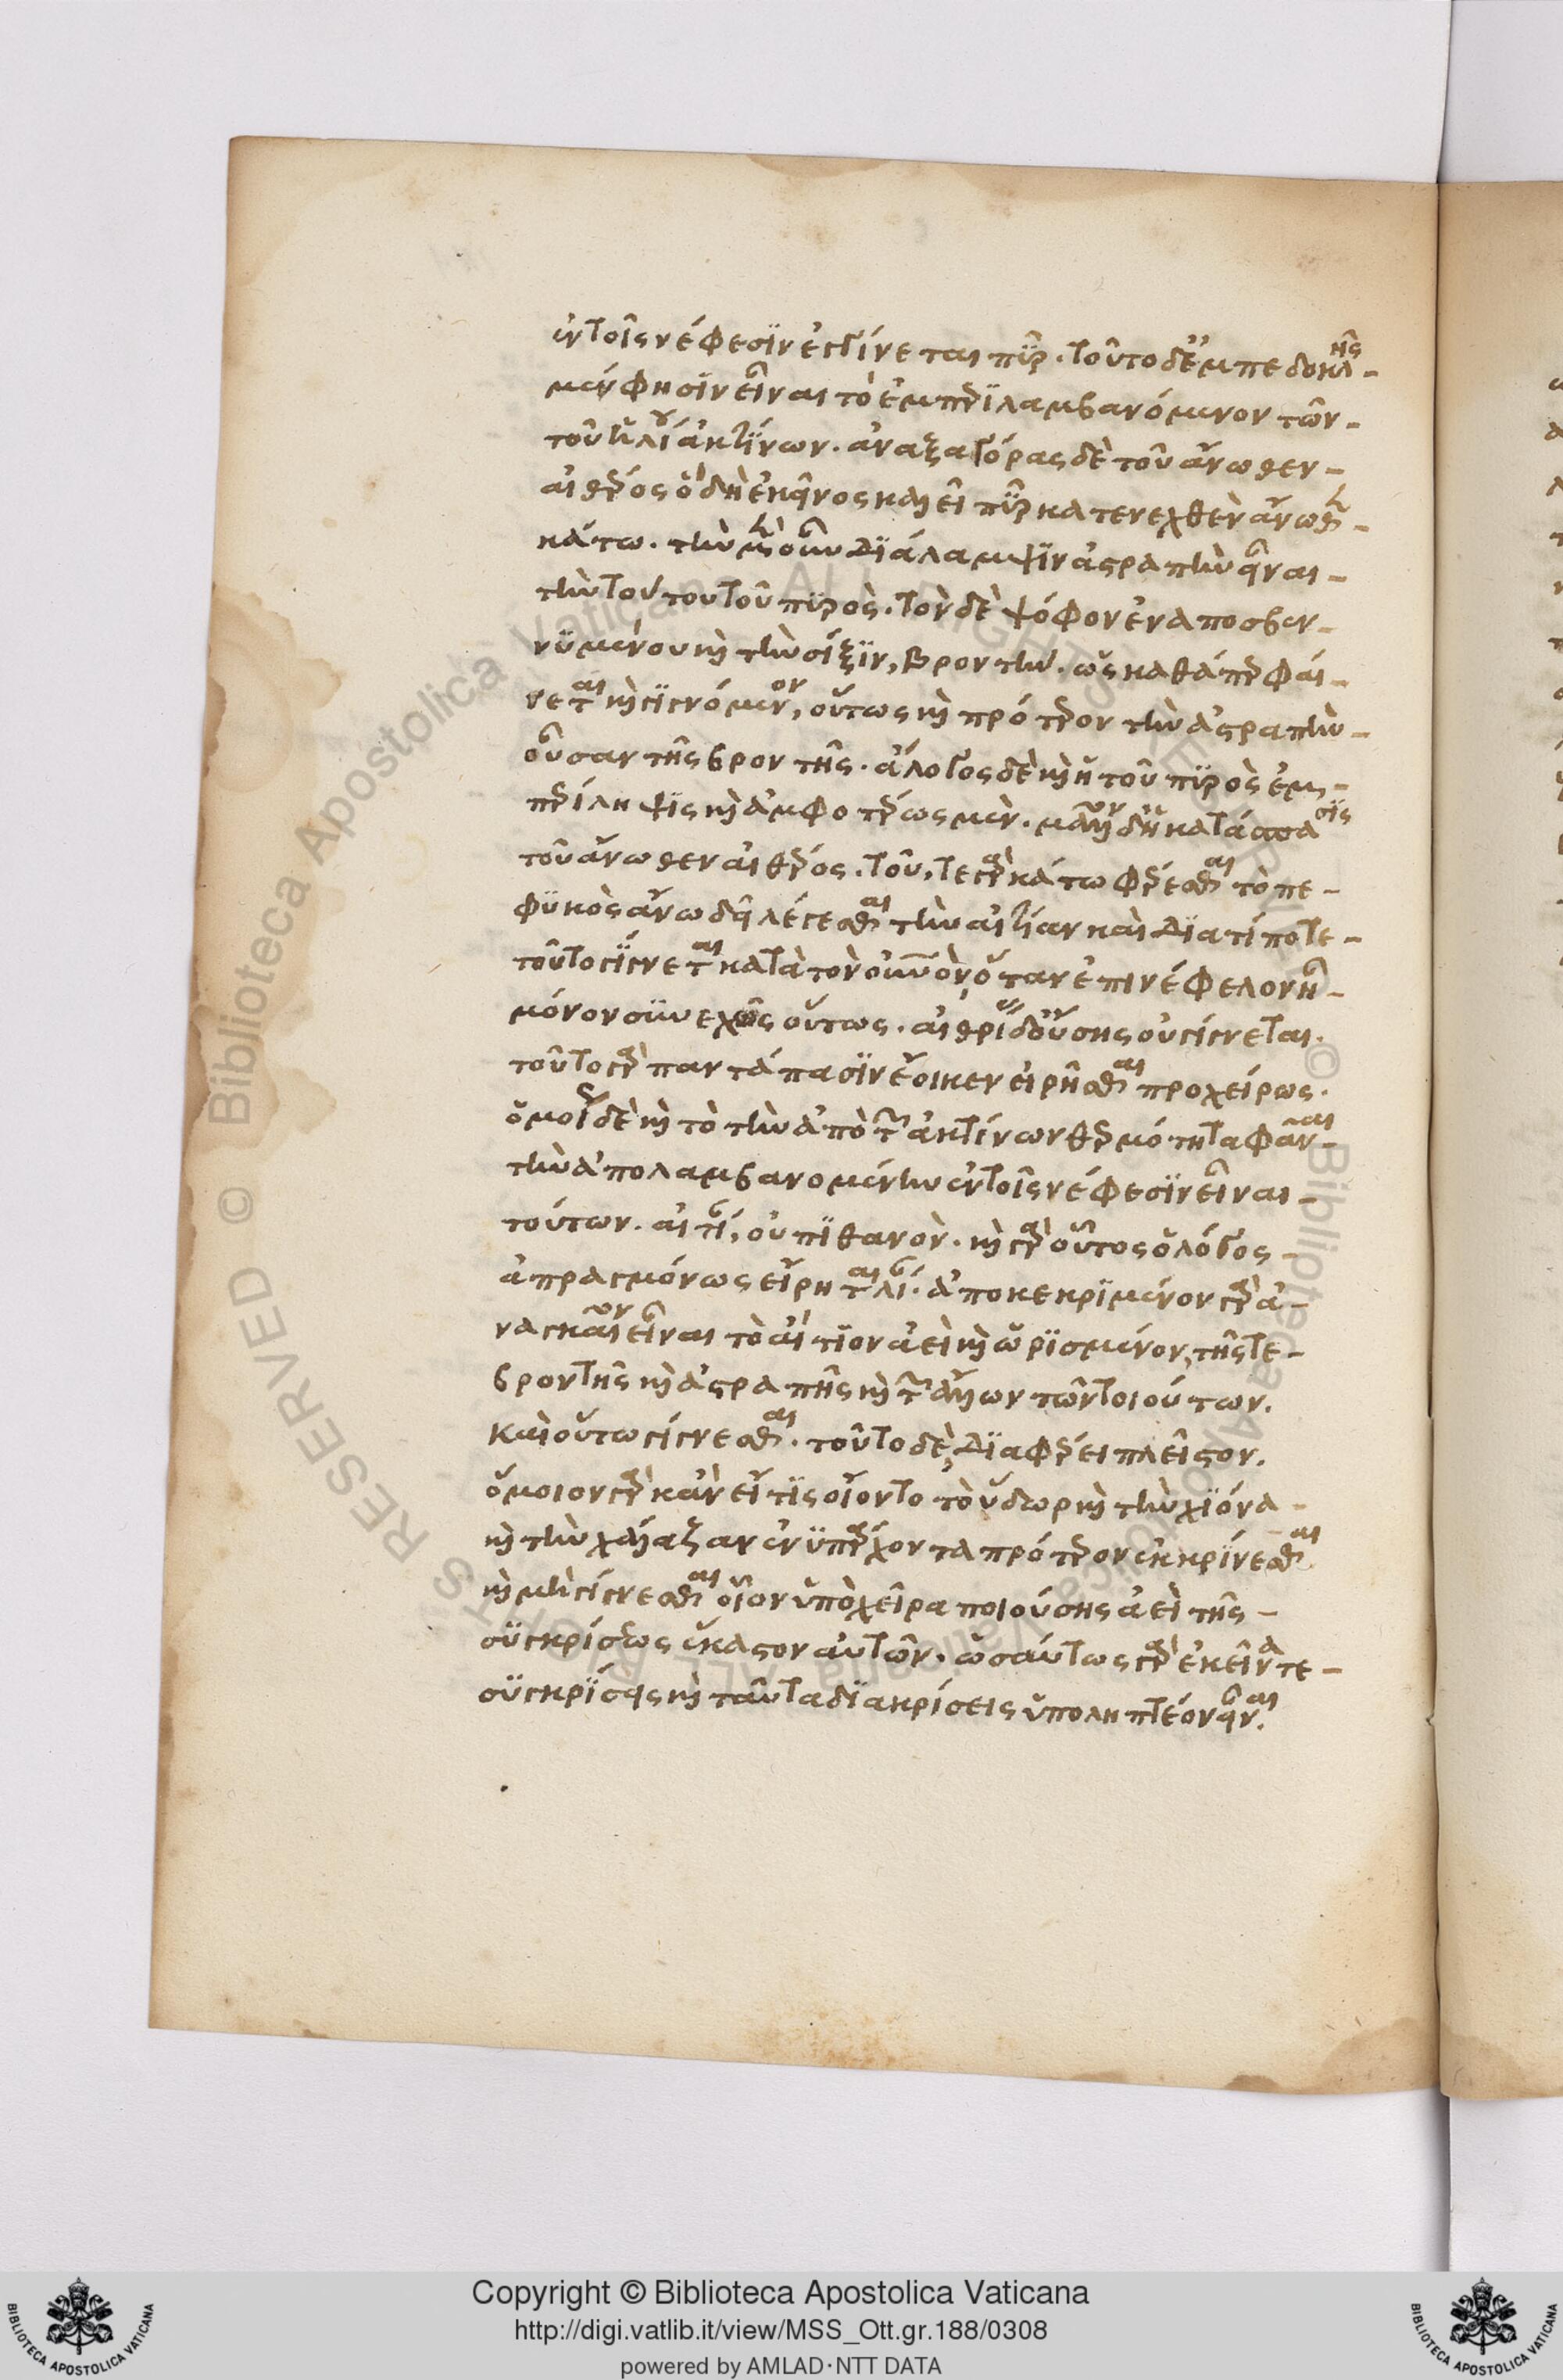 ἐν τοῖς νέφεσιν ἐγγίνεται πῦρ. τοῦτο δ' ἐμπεδοκλῆς -
μέν φησιν εἶναι τὸ ἐμπεριλαμβανόμενον τῶν -
τοῦ ἡλίου ἀκτίνων. ἀναξαγόρας δὲ τοῦ ἄνωθεν -
αἰθέρος ὃ δὴ ἐκεῖνος καλεῖ πῦρ κατενεχθὲν ἄνωθεν -
κάτω. τὴν μὲν οὖν διάλαμψιν ἀστραπὴν εἶναι -
τὴν τούτου τοῦ πυρός. τὸν δὲ ψόφον ἐναποσβεν -
νυμένου καὶ τὴν σίξιν, βροντήν. ὡς καθάπερ φαί -
νεται καὶ γιγνόμενον, οὕτως καὶ πρότερον τὴν ἀστραπὴν -
οὖσαν τῆς βροντῆς. ἄλογος δὲ καὶ ἡ τοῦ πυρὸς ἐμ -
περίληψις καὶ ἀμφοτέρως μέν. μᾶλλον δὴ κατάσπασις
τοῦ ἄνωθεν αἰθέρος. τοῦ, τε γὰρ κάτω φέρεσθαι τὸ πε -
φυκὸς ἄνω δεῖ λέγεσθαι τὴν αἰτίαν καὶ διατί ποτε -
τοῦτο γίγνεται κατὰ τὸν οὐρανὸν, ὅταν ἐπινέφελον ἦ -
μόνον συνεχῶς οὕτως. αἰθρίας δ' οὔσης οὐ γίγνεται.
τοῦτο γὰρ παντάπασιν ἔοικεν εἰρῆσθαι προχείρως.
ὁμοίως δὲ καὶ τὸ τὴν ἀπὸ τῶν ἀκτίνων θερμότητα φᾶναι -
τὴν ἀπολαμβανομένην ἐν τοῖς νέφεσιν εἶναι -
τούτων. αἰτίαν, οὐ πιθανόν. καὶ γὰρ οὗτος ὁ λόγος -
ἀπραγμόνως εἴρηται λίαν. ἀποκεκριμένον γὰρ ἀ -
ναγκαῖον εἶναι τὸ αἴτιον ἀεὶ καὶ ὡρισμένον, τῆς τε -
βροντῆς καὶ ἀστραπῆς καὶ τῶν ἄλλων τῶν τοιούτων.
καὶ οὕτω γίγνεσθαι. τοῦτο δὲ, διαφέρει πλεῖστον.
ὅμοιον γὰρ κἂν εἴ τις οἴοντο τὸ ὕδωρ καὶ τὴν χιόνα -
καὶ τὴν χάλαζαν ἐνυπάρχοντα πρότερον ἐκκρίνεσθαι
καὶ μὴ γίγνεσθαι οἷον ὑπὸ χεῖρα ποιούσης ἀεὶ τῆς -
συγκρίσεως ἕκαστον αὐτῶν. ὡσαύτως γὰρ ἐκεῖνά τε -
συγκρίσεις καὶ ταῦτα διακρίσεις ὑποληπτέον εἶναι.
Copyright © Biblioteca Apostolica Vaticana
http://digi.vatlib.it/view/MSS_Ott.gr.188/0308
powered by AMLAD·NTT DATA
BIBLIOTECA APOSTOLICA VATICANA
BIBLIOTECA APOSTOLICA VATICANA